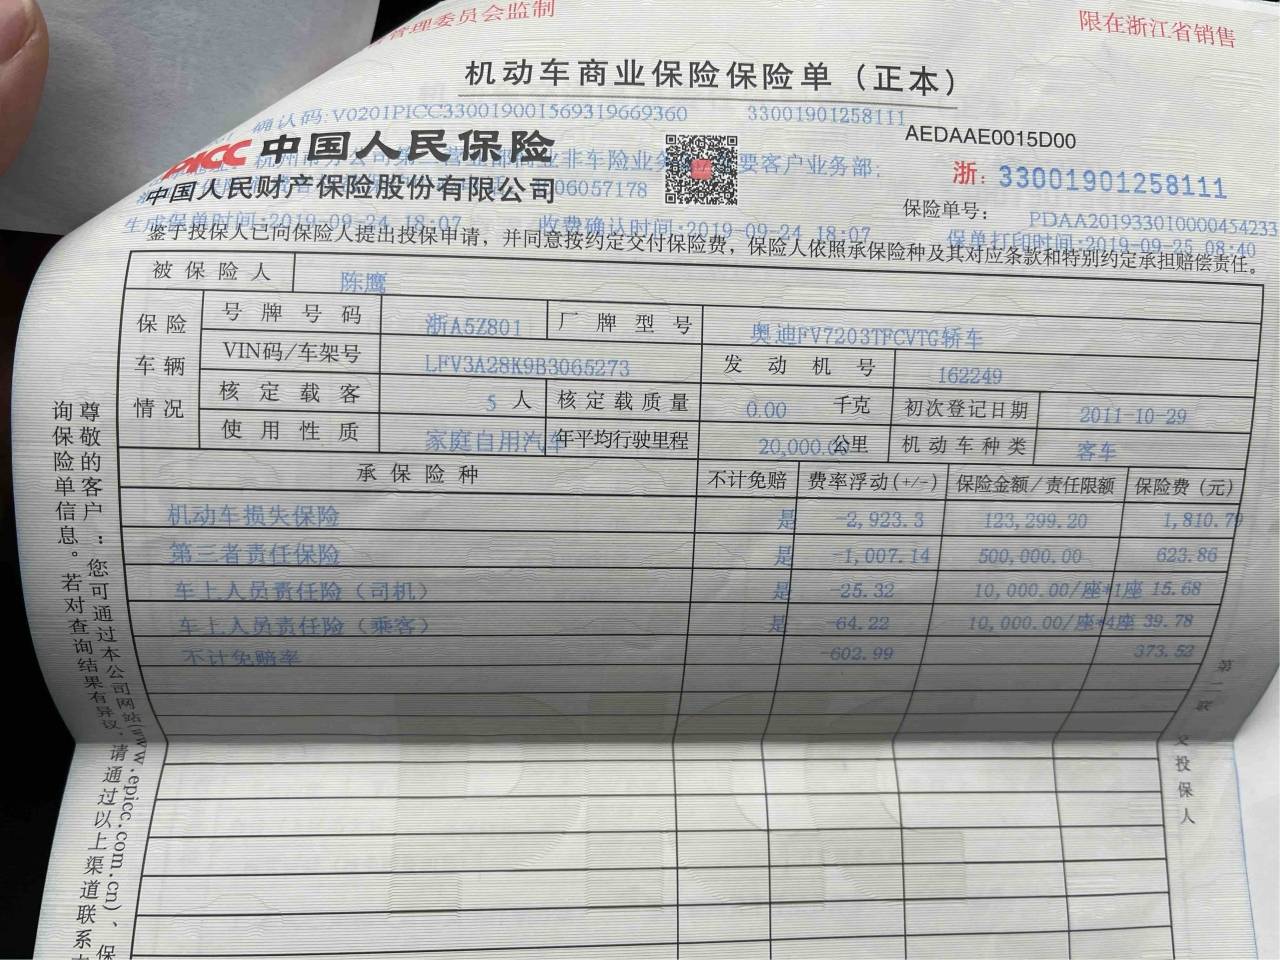 管理委员会监制
限在浙江省销售
机动车商业保险保险单（正本）
确认码:V0201PICC330019001569319669360 33001901258111
AEDAAE0015D00
PICC 中国人民保险
要客户业务部;
浙：33001901258111
中国人民财产保险股份有限公司
06057178
保险单号： PDAA201933010000454233
生成保单时间:2019-09-24 18:07 收费确认时间:2019-09-24 18:07 保单打印时间:2019-09-25 08:40
鉴于投保人已向保险人提出投保申请，并同意按约定交付保险费，保险人依照承保险种及其对应条款和特别约定承担赔偿责任。
被保险人 陈鹰
保险车辆情况
号牌号码 浙A5Z801 厂牌型号 奥迪FV7203TFCVTG轿车
VIN码/车架号 LFV3A28K9B3065273 发动机号 162249
核定载客 5 人 核定载质量 0.00 千克 初次登记日期 2011-10-29
使用性质 家庭自用汽车 年平均行驶里程 20,000.00 公里 机动车种类 客车
承保险种 不计免赔 费率浮动(+/-) 保险金额/责任限额 保险费（元）
机动车损失保险 是 -2,923.3 123,299.20 1,810.79
第三者责任保险 是 -1,007.14 500,000.00 623.86
车上人员责任险（司机） 是 -25.32 10,000.00/座*1座 15.68
车上人员责任险（乘客） 是 -64.22 10,000.00/座*4座 39.78
不计免赔率 -602.99 373.52
尊敬的客户：您可通过本公司网站(www.epicc.com.cn)、保
询保险单信息。若对查询结果有异议，请通过以上渠道联系
第一联 交投保人